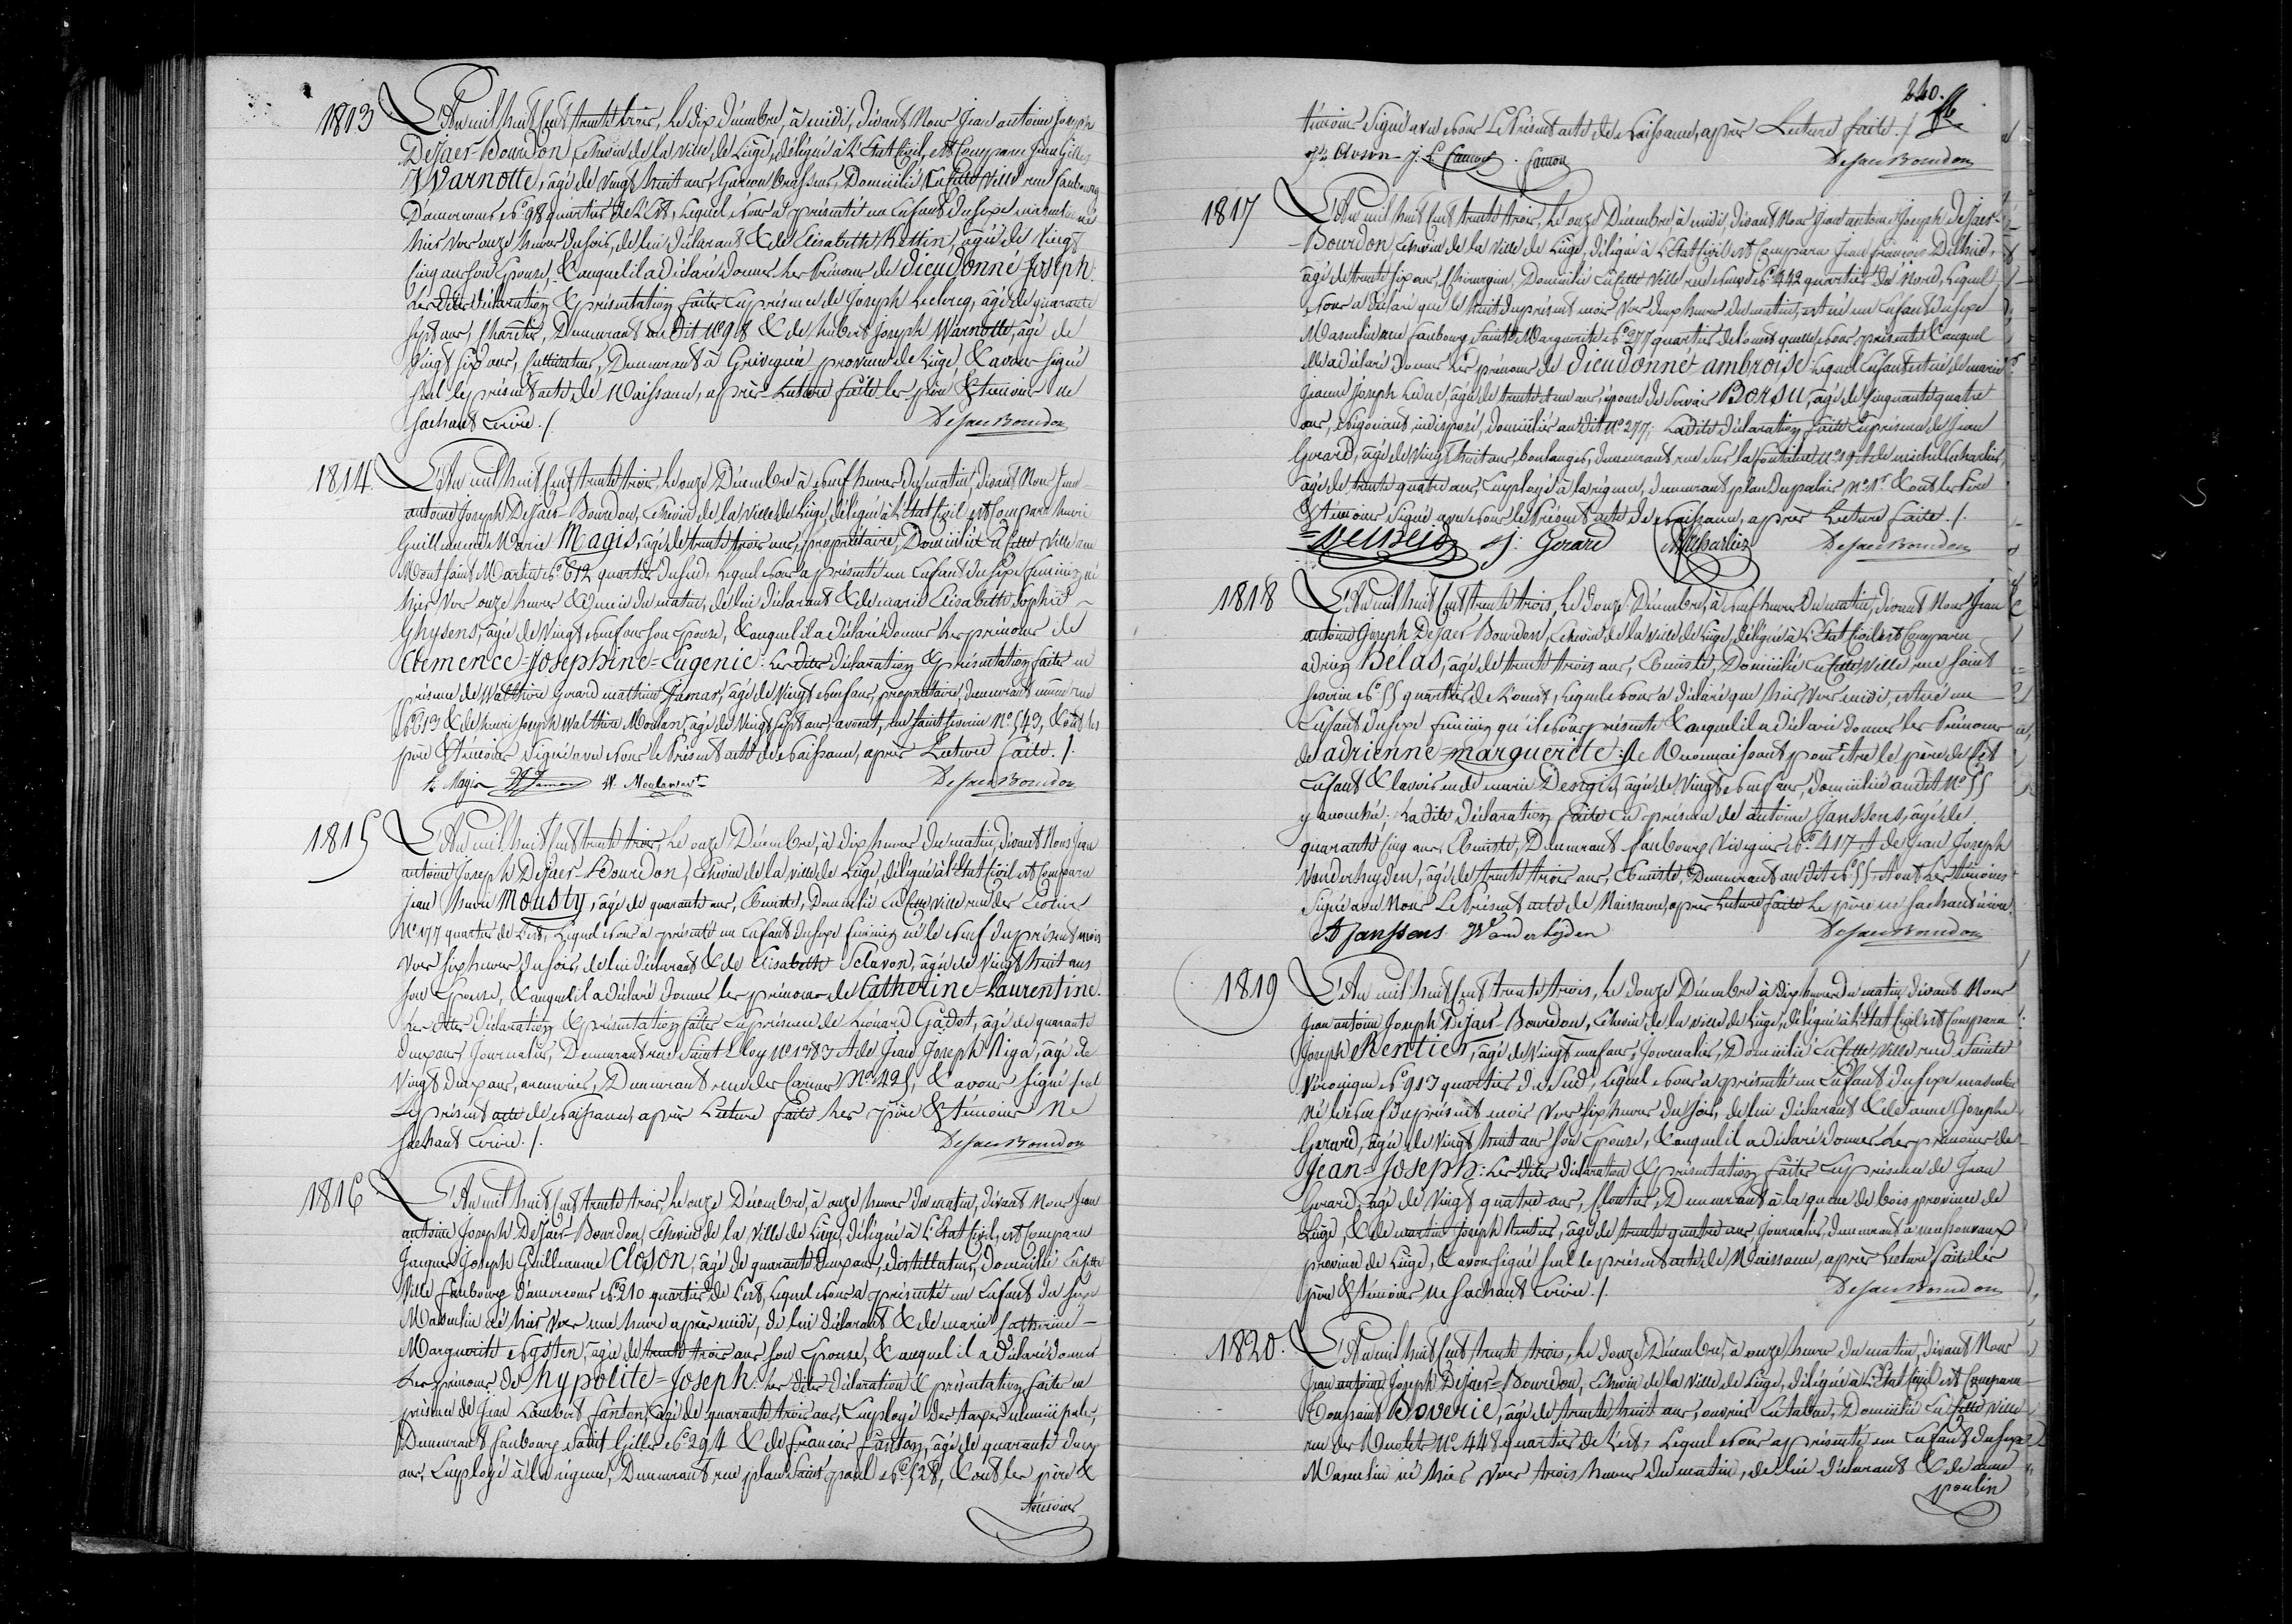 1813
L'An mil huit cent trente trois, le dix décembre, à midi, devant Nous Jean antoine Joseph
DeJaer-Bourdon, Echevin de la ville de Liège, délégué à l'Etat Civil, est Comparu Jean Gilles
Warnotte, agé de vingt huit ans, Garçon brasseur, Domicilié en cette ville rue faubourg
D'amercœur No. 98 quartier de l'Est, lequel Nous a présenté un Enfant du sexe masculin né
hier vers onze heures du soir, de lui déclarant & de Elisabeth Kettin, agée de vingt
cinq ans son Epouse, & auquel il a déclaré donner les Prénoms de Dieudonné Joseph.
Les dites déclaration & présentation faites en présence de Joseph Leclercq, agé de quarante
sept ans, Charetier, Demeurant au dit No 98 & de hubert Joseph Warnotte, agé de
vingt six ans, Cultivateur, Demeurant à Grivegnée province de Liège, & avons signé
seul le présent acte de Naissance, après Lecture faite les père & témoins ne
sachant Ecrire ./. DeJaer Bourdon
1814.
L'An mil huit cent trente trois, le onze Décembre à neuf heures du matin, devant Nous Jean
antoine Joseph DeJaer-Bourdon, Echevin de la ville de Liège, délégué à l'Etat Civil est Comparu henri
Guillaume Marie Magis, agé de trente trois ans, propriétaire, Domicilié à cette ville rue
Mont saint Martin No. 612 quartier du Sud, lequel Nous a présenté un Enfant du sexe féminin né
hier vers onze heures & demie du matin, de lui déclarant & de marie Elisabeth Sophie
Ghysens, agée de vingt neuf ans son Epouse, & auquel il a déclaré donner les prénoms de
Clemence=Josephine=Eugenie: les dites déclaration & présentation faites en
présence de Walthère Gerard mathieu Jamar, agé de vingt neuf ans, propriétaire, demeurant même rue
No 613 & de henri Joseph Walthère Moulan, agé de vingt sept ans, avocat, rue saint Severin No. 543, & ont les
père & témoins signé avec Nous le Présent acte de Naissance, après Lecture faite ./.
h. Magis Jamar W. Moulan avt. DeJaer Bourdon
1815
L'An mil huit cent trente trois, le onze Décembre, à dix heures du matin, devant Nous Jean
antoine Joseph DeJaer-Bourdon, Echevin de la ville de Liège, délégué à l'Etat Civil est Comparu
Jean henri Mousty, agé de quarante ans, Ebeniste, Domicilié en cette ville rue des
No 177 quartier de l'Est, lequel Nous a présenté un Enfant du sexe féminin né le Neuf du présent mois
vers six heures du soir, de lui déclarant & de Elisabeth Sclavon, agée de vingt huit ans
son Epouse, & auquel il a déclaré donner les prénoms de Catherine=Laurentine.
Les dites déclaration & présentation faites en présence de Léonard Gadot, agé de quarante
deux ans, Journalier, Demeurant rue Saint Eloy No 1383 & de Jean Joseph Riga, agé de
vingt deux ans, armurier, Demeurant rue des Carmes No. 425, & avons signé seul
le présent acte de Naissance, après Lecture faite les père & témoins Ne
sachant Ecrire ./. DeJaer Bourdon
1816
L'An mil huit cent trente trois, le onze Décembre, à onze heures du matin, devant Nous Jean
antoine Joseph DeJaer-Bourdon, Echevin de la Ville de Liège, délégué à l'Etat Civil, est Comparu
Jacques Joseph Guillaume Closon, agé de quarante deux ans, distillateur, domicilié en cette
ville faubourg d'amercœur No. 210 quartier de l'Est, lequel Nous a présenté un Enfant du sexe
Masculin né hier vers une heure après midi, de lui déclarant & de marie Catherine
Marguerite Nysten, agée de trente trois ans son Epouse, & auquel il a déclaré donner
Les prénoms de hypolite=Joseph. les dites déclaration & présentation faites en
présence de Jean Lambert fanton, agé de quarante trois ans, Employé des taxes municipales,
Demeurant faubourg saint Gilles No. 294 & de françois fanton, agé de quarante deux
ans, Employé à la régence, Demeurant rue place Saint paul No. 528, & ont les père &
témoins
240.
témoins signé avec Nous le Présent acte de Naissance, après Lecture faite ./.
Closon J. L. fanton . fanton DeJaer Bourdon
1817
L'An mil huit cent trente trois, le onze Décembre à midi, devant Nous Jean antoine Joseph DeJaer-
-Bourdon Echevin de la ville de Liège, délégué à l'Etat Civil est Comparu Jean françois Delheid,
agé de trente six ans, Chirurgien, Domicilié en cette ville rue neuve No 442 quartier du Nord, lequel
Nous a déclaré que le huit du présent mois vers deux heures du matin, est né un Enfant du sexe
Masculin rue faubourg Sainte Marguerite No. 277 quartier de l'ouest qu'il Nous présente & auquel
il a déclaré donner les prénoms de Dieudonné-ambroise: lequel Enfant est né de marie
Jeanne Joseph Leduc, agée de trente & un ans, épouse de Servais Borsu, agé de Cinquante quatre
ans, Négociant, indisposé, domiciliés au dit No. 277. La dite déclaration faite en présence de Jean
Gerard, agé de vingt huit ans, boulanger, demeurant rue sur la fontaine No 19 & de michel charlier,
agé de trente quatre ans, Employé à la régence, demeurant place du palais No. 1r. & ont les
& témoins signé avec Nous le Présent acte de Naissance, après Lecture faite ./.
Delheid J: Gerard M Charlier DeJaer Bourdon
1818
L'An mil huit cent trente trois, le douze Décembre, à neuf heures du matin, devant Nous Jean
antoine Joseph DeJaer Bourdon, Echevin de la ville de Liège, délégué à l'Etat Civil est Comparu
adrien Bélas, agé de trente trois ans, Ebeniste, Domicilié en cette ville rue saint
Severin No. 55 quartier de l'ouest, lequel Nous a déclaré que hier vers midi, est né un
Enfant du sexe féminin qu'il Nous présente & auquel il a déclaré donner les Prénoms
de adrienne=marguerite: Se Reconnaissant pour être le père de cet
Enfant & l'avoir eu de marie Desgi, agée de vingt neuf ans, domiciliée au dit No. 55
y accouchée; La dite déclaration faite en présence de antoine Janssens, agé de
quarante cinq ans, Ebeniste, Demeurant faubourg Vivegnis No. 417 & de Jean Joseph
Vanderheyden, agé de trente trois ans, Ebeniste, Demeurant au dit No. 55. & ont les témoins
signé avec Nous Le Présent acte de Naissance, après lecture faite le père ne sachant écrire.
A Janssens Vanderheyden DeJaer Bourdon
1819
L'An mil huit cent trente trois, le douze Décembre à dix heures du matin devant Nous
Jean antoine Joseph DeJaer-Bourdon, Echevin de la ville de Liège, délégué à l'Etat Civil est Comparu
Joseph Rentier, agé de vingt neuf ans, Journalier, Domicilié en cette ville rue Sainte
Véronique No. 913 quartier du Sud, lequel Nous a présenté un Enfant du sexe masculin
né le neuf du présent mois vers six heures du soir, de lui déclarant & de anne Josephe
Gerard, agée de vingt huit ans son Epouse, & auquel il a déclaré donner les prénoms de
Jean=Joseph: Les dites déclaration & présentation faites en présence de Jean
Gerard, agé de vingt quatre ans, cloutier, Demeurant à la queue de bois province de
Liège, & de martin Joseph Rentier, agé de trente quatre ans, Journalier, demeurant à
province de Liège, & avons signé seul le présent acte de Naissance, après lecture faite les
père & témoins Ne sachant Ecrire ./. DeJaer Bourdon
1820.
L'An mil huit cent trente trois, le douze Décembre, à onze heures du matin, devant Nous
Jean antoine Joseph DeJaer=Bourdon, Echevin de la ville de Liège, délégué à l'Etat Civil est Comparu
Toussaint Doverie, agé de trente huit ans, ouvrier en tabac, Domicilié en cette ville
rue des No. 448 quartier de l'Est, lequel Nous a présenté un Enfant du sexe
Masculin né hier vers trois heures du matin, de lui déclarant & de anne
poulin